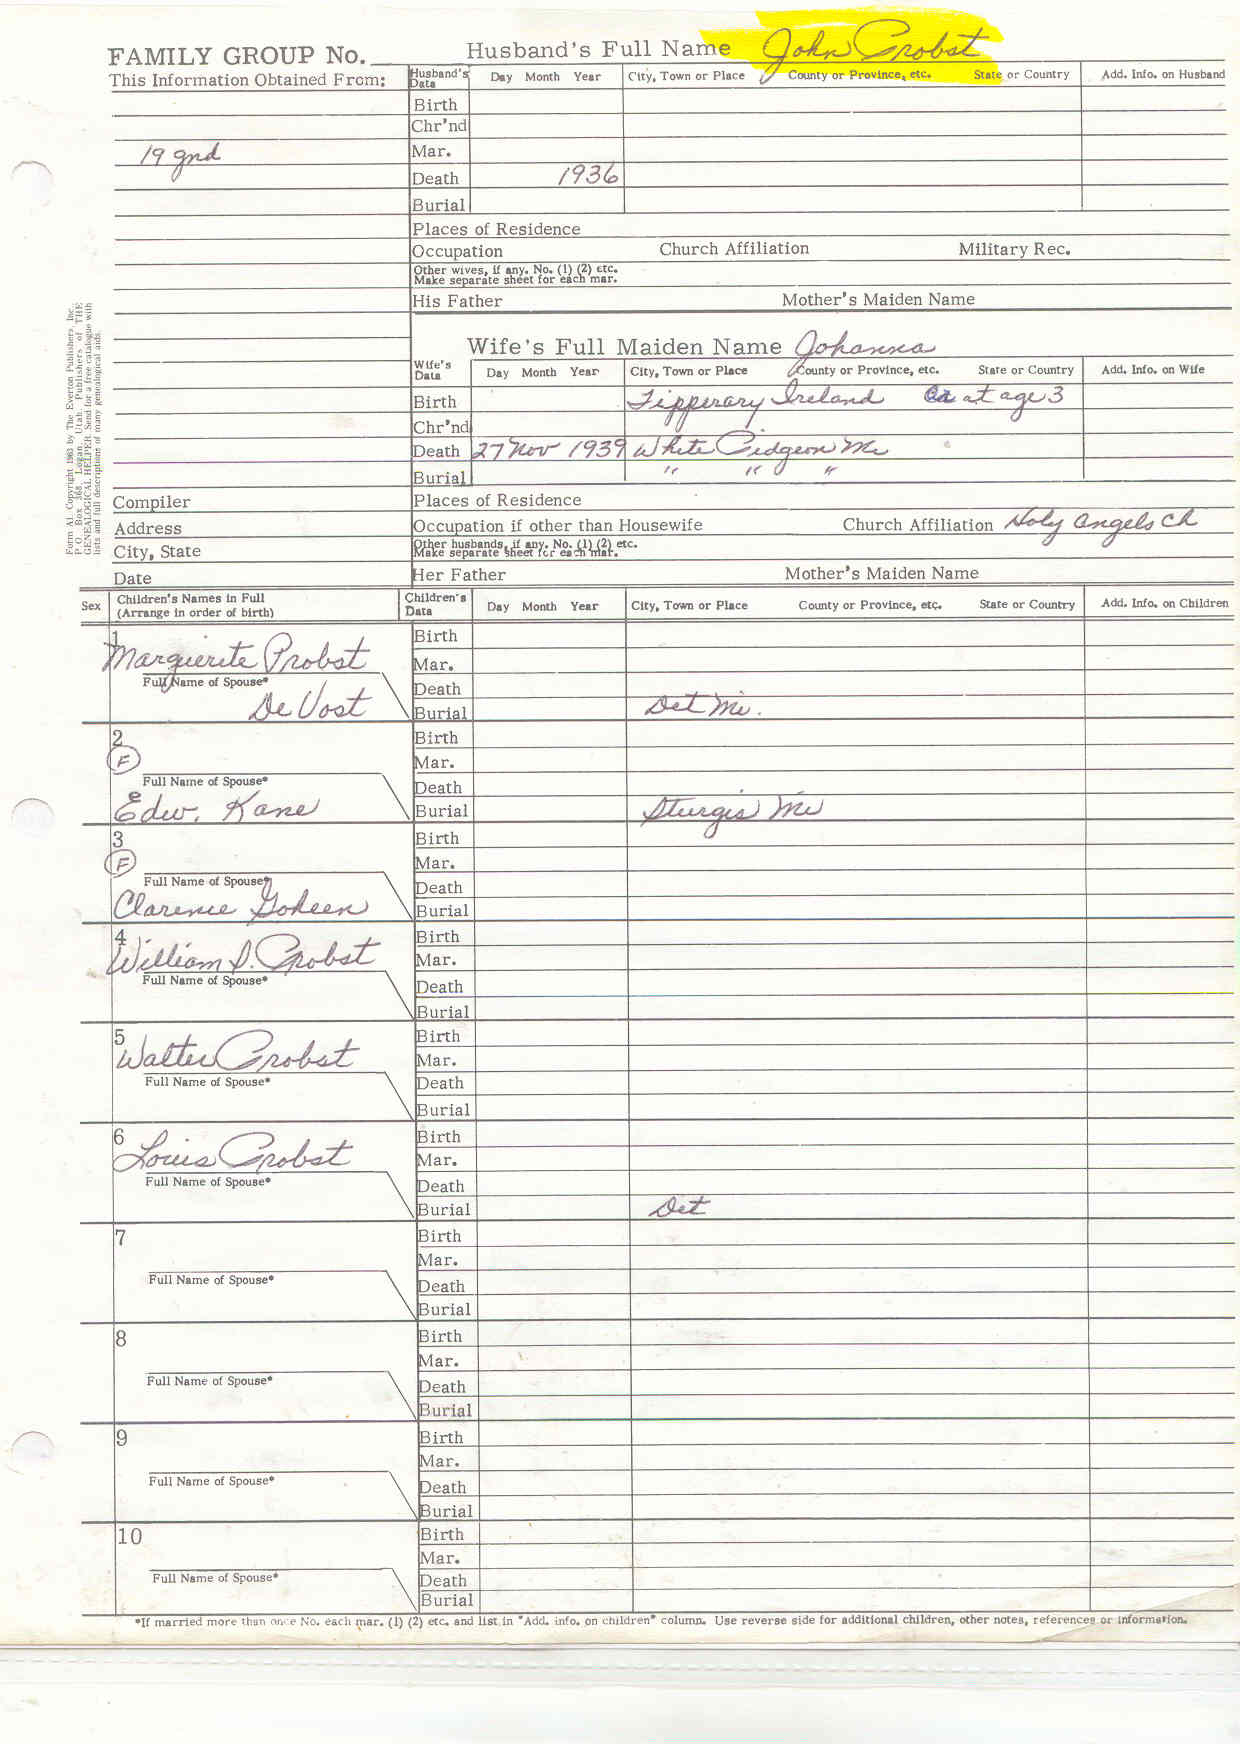 FAMILY GROUP No.
Husband's Full Name John Probst
This Information Obtained From:
Husband's Data Day Month Year City, Town or Place County or Province, etc. State or Country Add. Info. on Husband
Birth
Chr'nd
19 gnd
Mar.
Death 1936
Burial
Places of Residence
Occupation Church Affiliation Military Rec.
Other wives, if any. No. (1) (2) etc.
Make separate sheet for each mar.
His Father Mother's Maiden Name
Wife's Full Maiden Name Johanna
Wife's Data Day Month Year City, Town or Place County or Province, etc. State or Country Add. Info. on Wife
Birth Tipperary Ireland Ca at age 3
Chr'nd
Death 27 Nov 1939 White Pidgeon Mi
Burial " " "
Form A1. Copyright 1963 by The Everton Publishers, Inc.,
P. O. Box 368, Logan, Utah. Publishers of THE
GENEALOGICAL HELPER. Send for a free catalogue with
lists and full descriptions of many genealogical aids.
Compiler
Places of Residence
Address
Occupation if other than Housewife Church Affiliation Holy Angels Ch
City, State
Other husbands, if any. No. (1) (2) etc.
Make separate sheet for each mar.
Date
Her Father Mother's Maiden Name
Sex Children's Names in Full
(Arrange in order of birth)
Children's Data Day Month Year City, Town or Place County or Province, etc. State or Country Add. Info. on Children
1 Birth
Marguerite Probst Mar.
Full Name of Spouse* Death
De Vost Burial Det Mi.
2 Birth
F Mar.
Full Name of Spouse* Death
Edw. Kane Burial Sturgis Mi
3 Birth
F Mar.
Full Name of Spouse* Death
Clarence Goheen Burial
4 Birth
William D. Probst Mar.
Full Name of Spouse* Death
Burial
5 Birth
Walter Probst Mar.
Full Name of Spouse* Death
Burial
6 Birth
Louis Probst Mar.
Full Name of Spouse* Death
Burial Det
7 Birth
Mar.
Full Name of Spouse* Death
Burial
8 Birth
Mar.
Full Name of Spouse* Death
Burial
9 Birth
Mar.
Full Name of Spouse* Death
Burial
10 Birth
Mar.
Full Name of Spouse* Death
Burial
*If married more than once No. each mar. (1) (2) etc. and list in "Add. info. on children" column. Use reverse side for additional children, other notes, references or information.